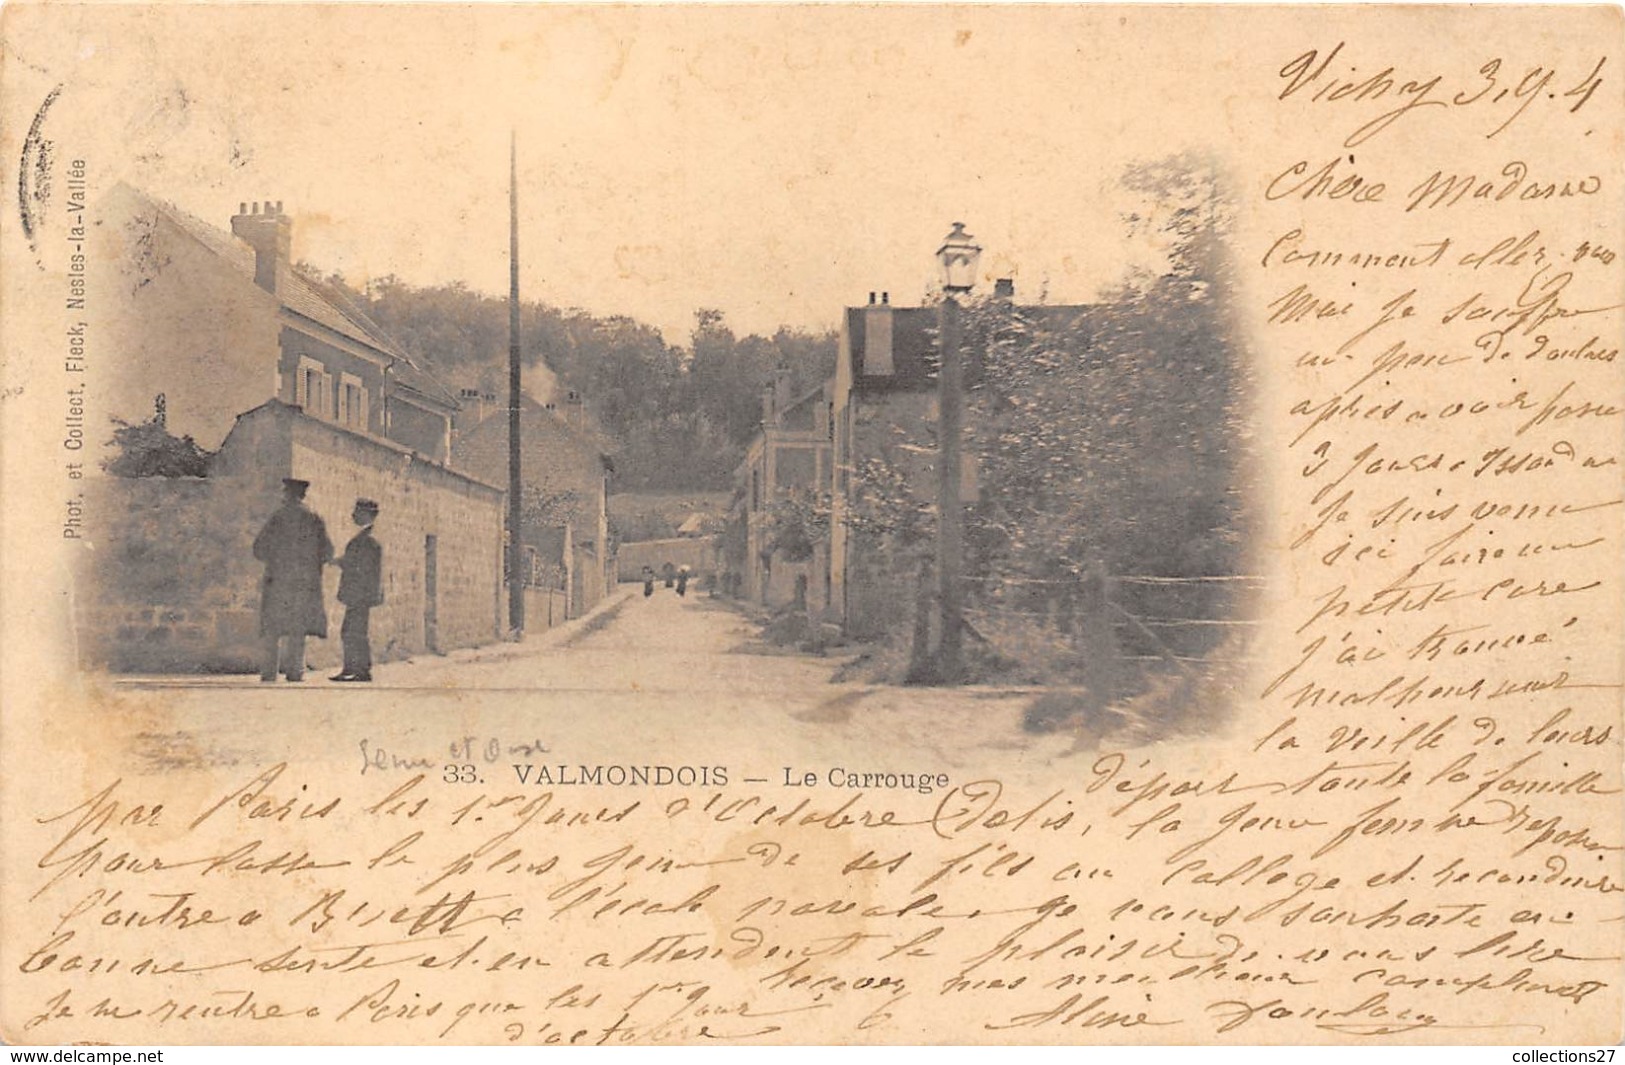 Vichy 3.9.4
Chère Madame
Comment aller-vous
Moi je souffre
un peu de douleurs
après avoir passé
3 jours a Issoudun
Je suis venu
ici faire un
petite cure
j'ai trouvé
malheureusement
la veille de leurs
départ toute la famille
Delis, la jeune femme repasse
par Paris les 1er jours d'Octobre
pour laisser le plus jeune de ses fils au College et reconduire
l'autre a Brest a l'école navale. Je vous souhaite une
bonne sente et en attendent le plaisir de vous lire
recevez mes meilleur compliments
Je ne rentre a Paris que les 1er jour
d'octobre
Aline
Seine et Oise
33. VALMONDOIS — Le Carrouge
Phot. et Collect. Fleck, Nesles-la-Vallée
collections27